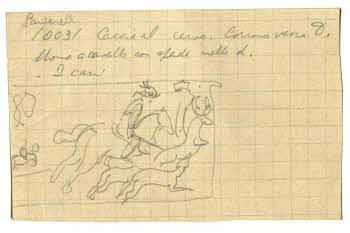 10031 Caccia al cervo. Corrono verso D.
Uomo a cavallo con spada nella d.
. 2 cani